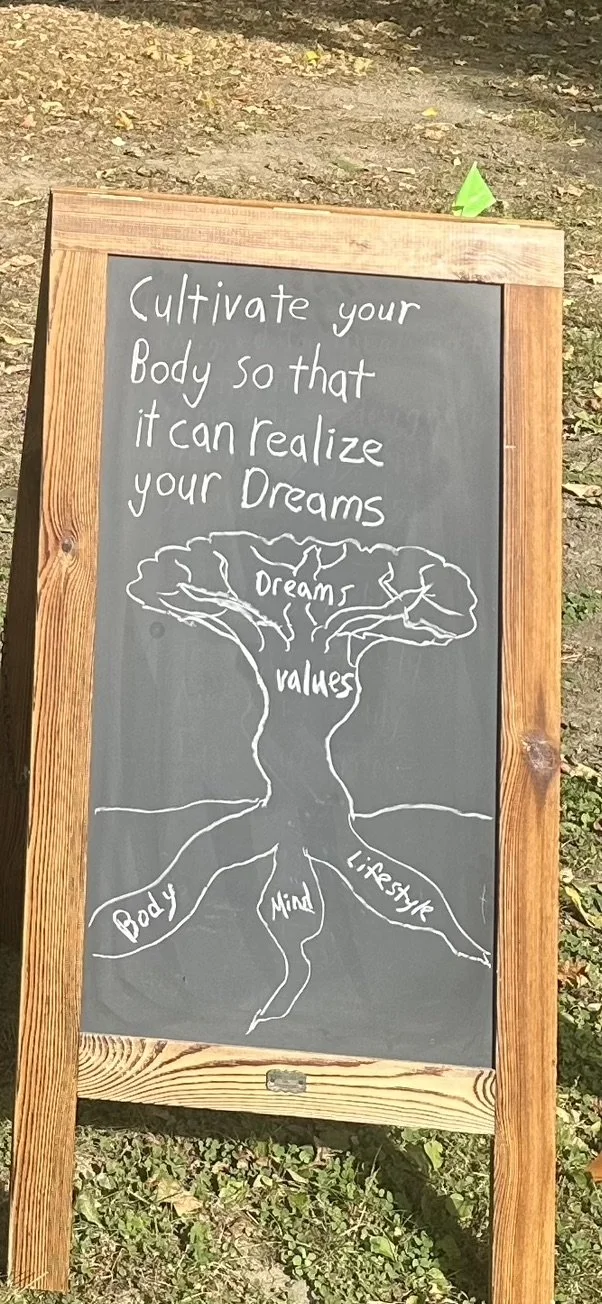 Cultivate your
Body so that
it can realize
your Dreams
Dreams
values
Body
Mind
Lifestyle